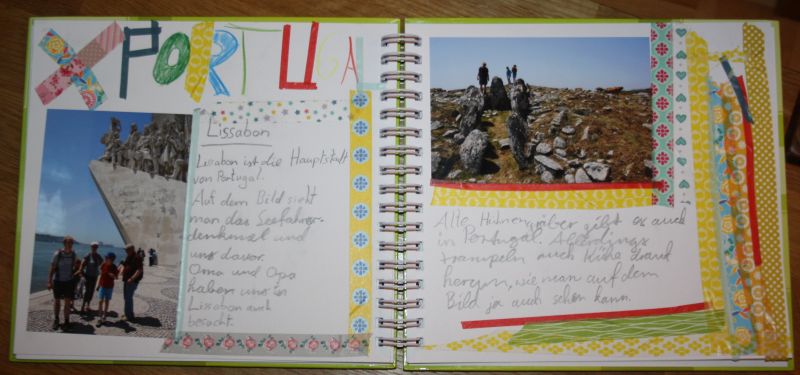 PORTUGAL
Lissabon
Lissabon ist die Hauptstadt
von Portugal.
Auf dem Bild sieht
man das Seefahrer-
denkmal und
uns davor.
Oma und Opa
haben uns in
Lissabon auch
besucht.
Alte Hünengräber gibt es auch
in Portugal. Allerdings
trampeln auch Kühe drauf
herum, wie man auf dem
Bild ja auch sehen kann.